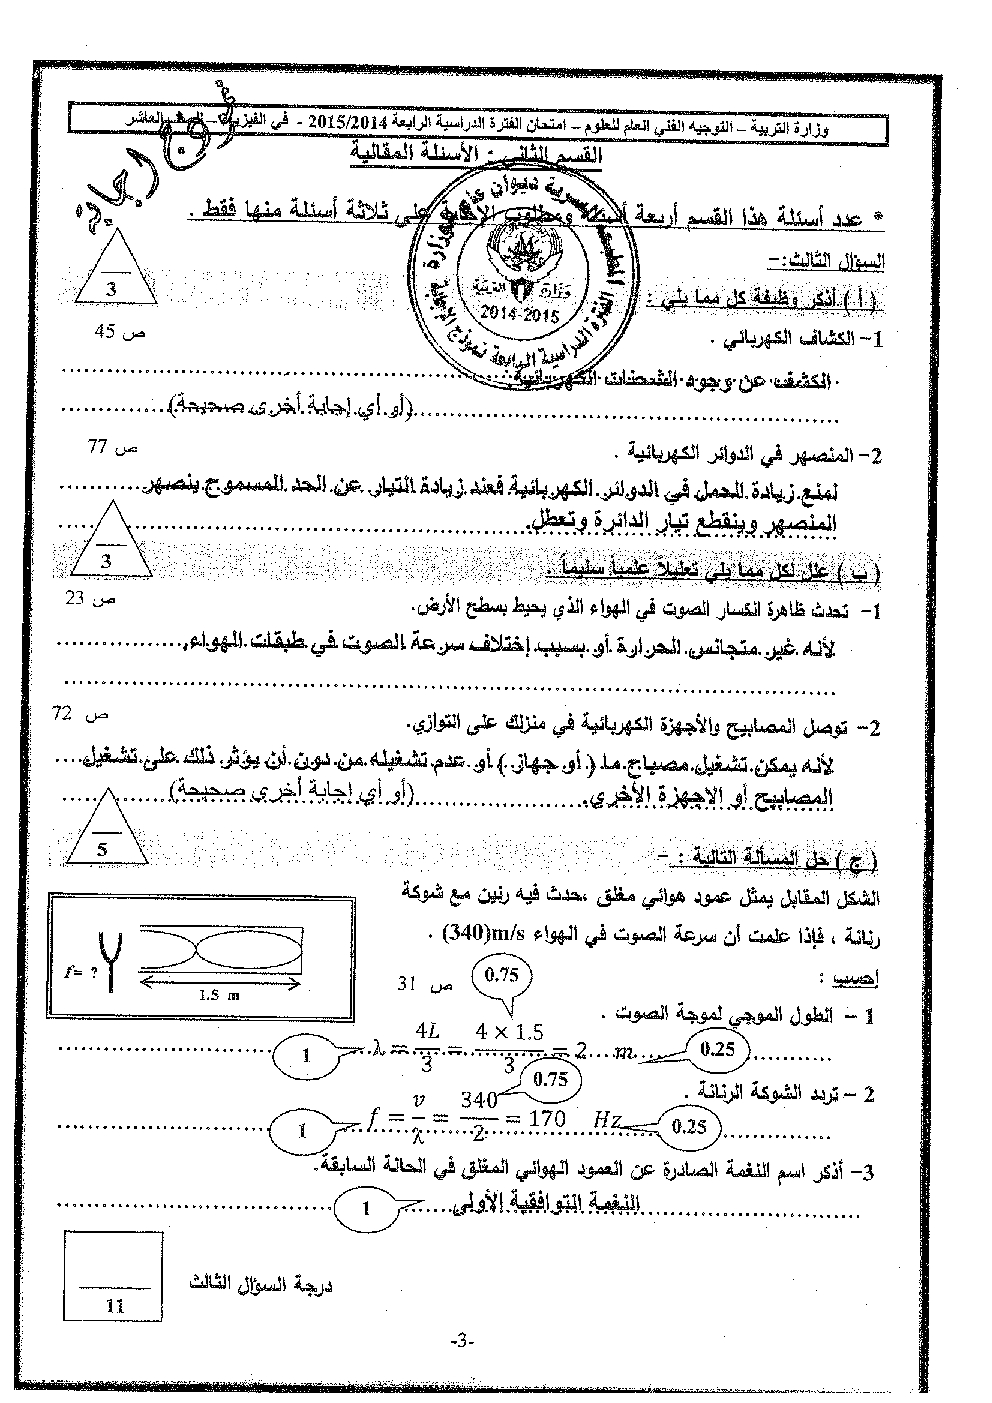 نموذج إجابة
وزارة التربية – التوجيه الفني العام للعلوم – امتحان الفترة الدراسية الرابعة 2015/2014 - في الفيزياء – الصف العاشر
القسم الثاني : الأسئلة المقالية
* عدد أسئلة هذا القسم أربعة أسئلة ومطلوب الإجابة على ثلاثة أسئلة منها فقط .
وزارة التربية
2014-2015
السؤال الثالث:–
( أ ) أذكر وظيفة كل مما يلي :
3
1– الكشاف الكهربائي .
ص 45
الكشف عن وجود الشحنات الكهربائية
(أو أي إجابة أخرى صحيحة)
2– المنصهر في الدوائر الكهربائية .
ص 77
لمنع زيادة الحمل في الدوائر الكهربائية فعند زيادة التيار عن الحد المسموح ينصهر
المنصهر وينقطع تيار الدائرة وتعطل.
3
( ب ) علل لكل مما يلي تعليلاً علمياً سليماً .
1– تحدث ظاهرة انكسار الصوت في الهواء الذي يحيط بسطح الأرض.
ص 23
لأنه غير متجانس الحرارة أو بسبب إختلاف سرعة الصوت في طبقات الهواء
2– توصل المصابيح والأجهزة الكهربائية في منزلك على التوازي.
ص 72
لأنه يمكن تشغيل مصباح ما ( أو جهاز ) أو عدم تشغيله من دون أن يؤثر ذلك على تشغيل
المصابيح أو الاجهزة الأخري. (أو أي إجابة أخرى صحيحة)
5
( ج ) حل المسألة التالية : –
الشكل المقابل يمثل عمود هوائي مغلق ،حدث فيه رنين مع شوكة
رنانة ، فإذا علمت أن سرعة الصوت في الهواء m/s(340) .
f= ?
1.5 m
أحسب :
ص 31
0.75
1 – الطول الموجي لموجة الصوت .
1 λ = 4L/3 = 4 × 1.5/3 = 2 m 0.25
2 – تردد الشوكة الرنانة .
0.75
1 f = v/λ = 340/2 = 170 Hz 0.25
3– أذكر اسم النغمة الصادرة عن العمود الهوائي المغلق في الحالة السابقة.
النغمة التوافقية الأولي 1
درجة السؤال الثالث
11
-3-